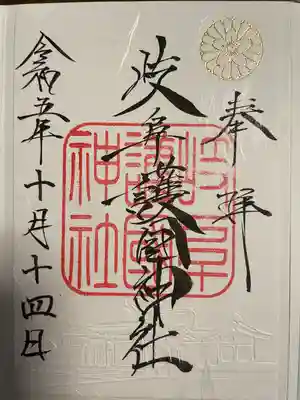 奉拝
岐阜護國神社
岐阜護國神社
令和五年十月十四日